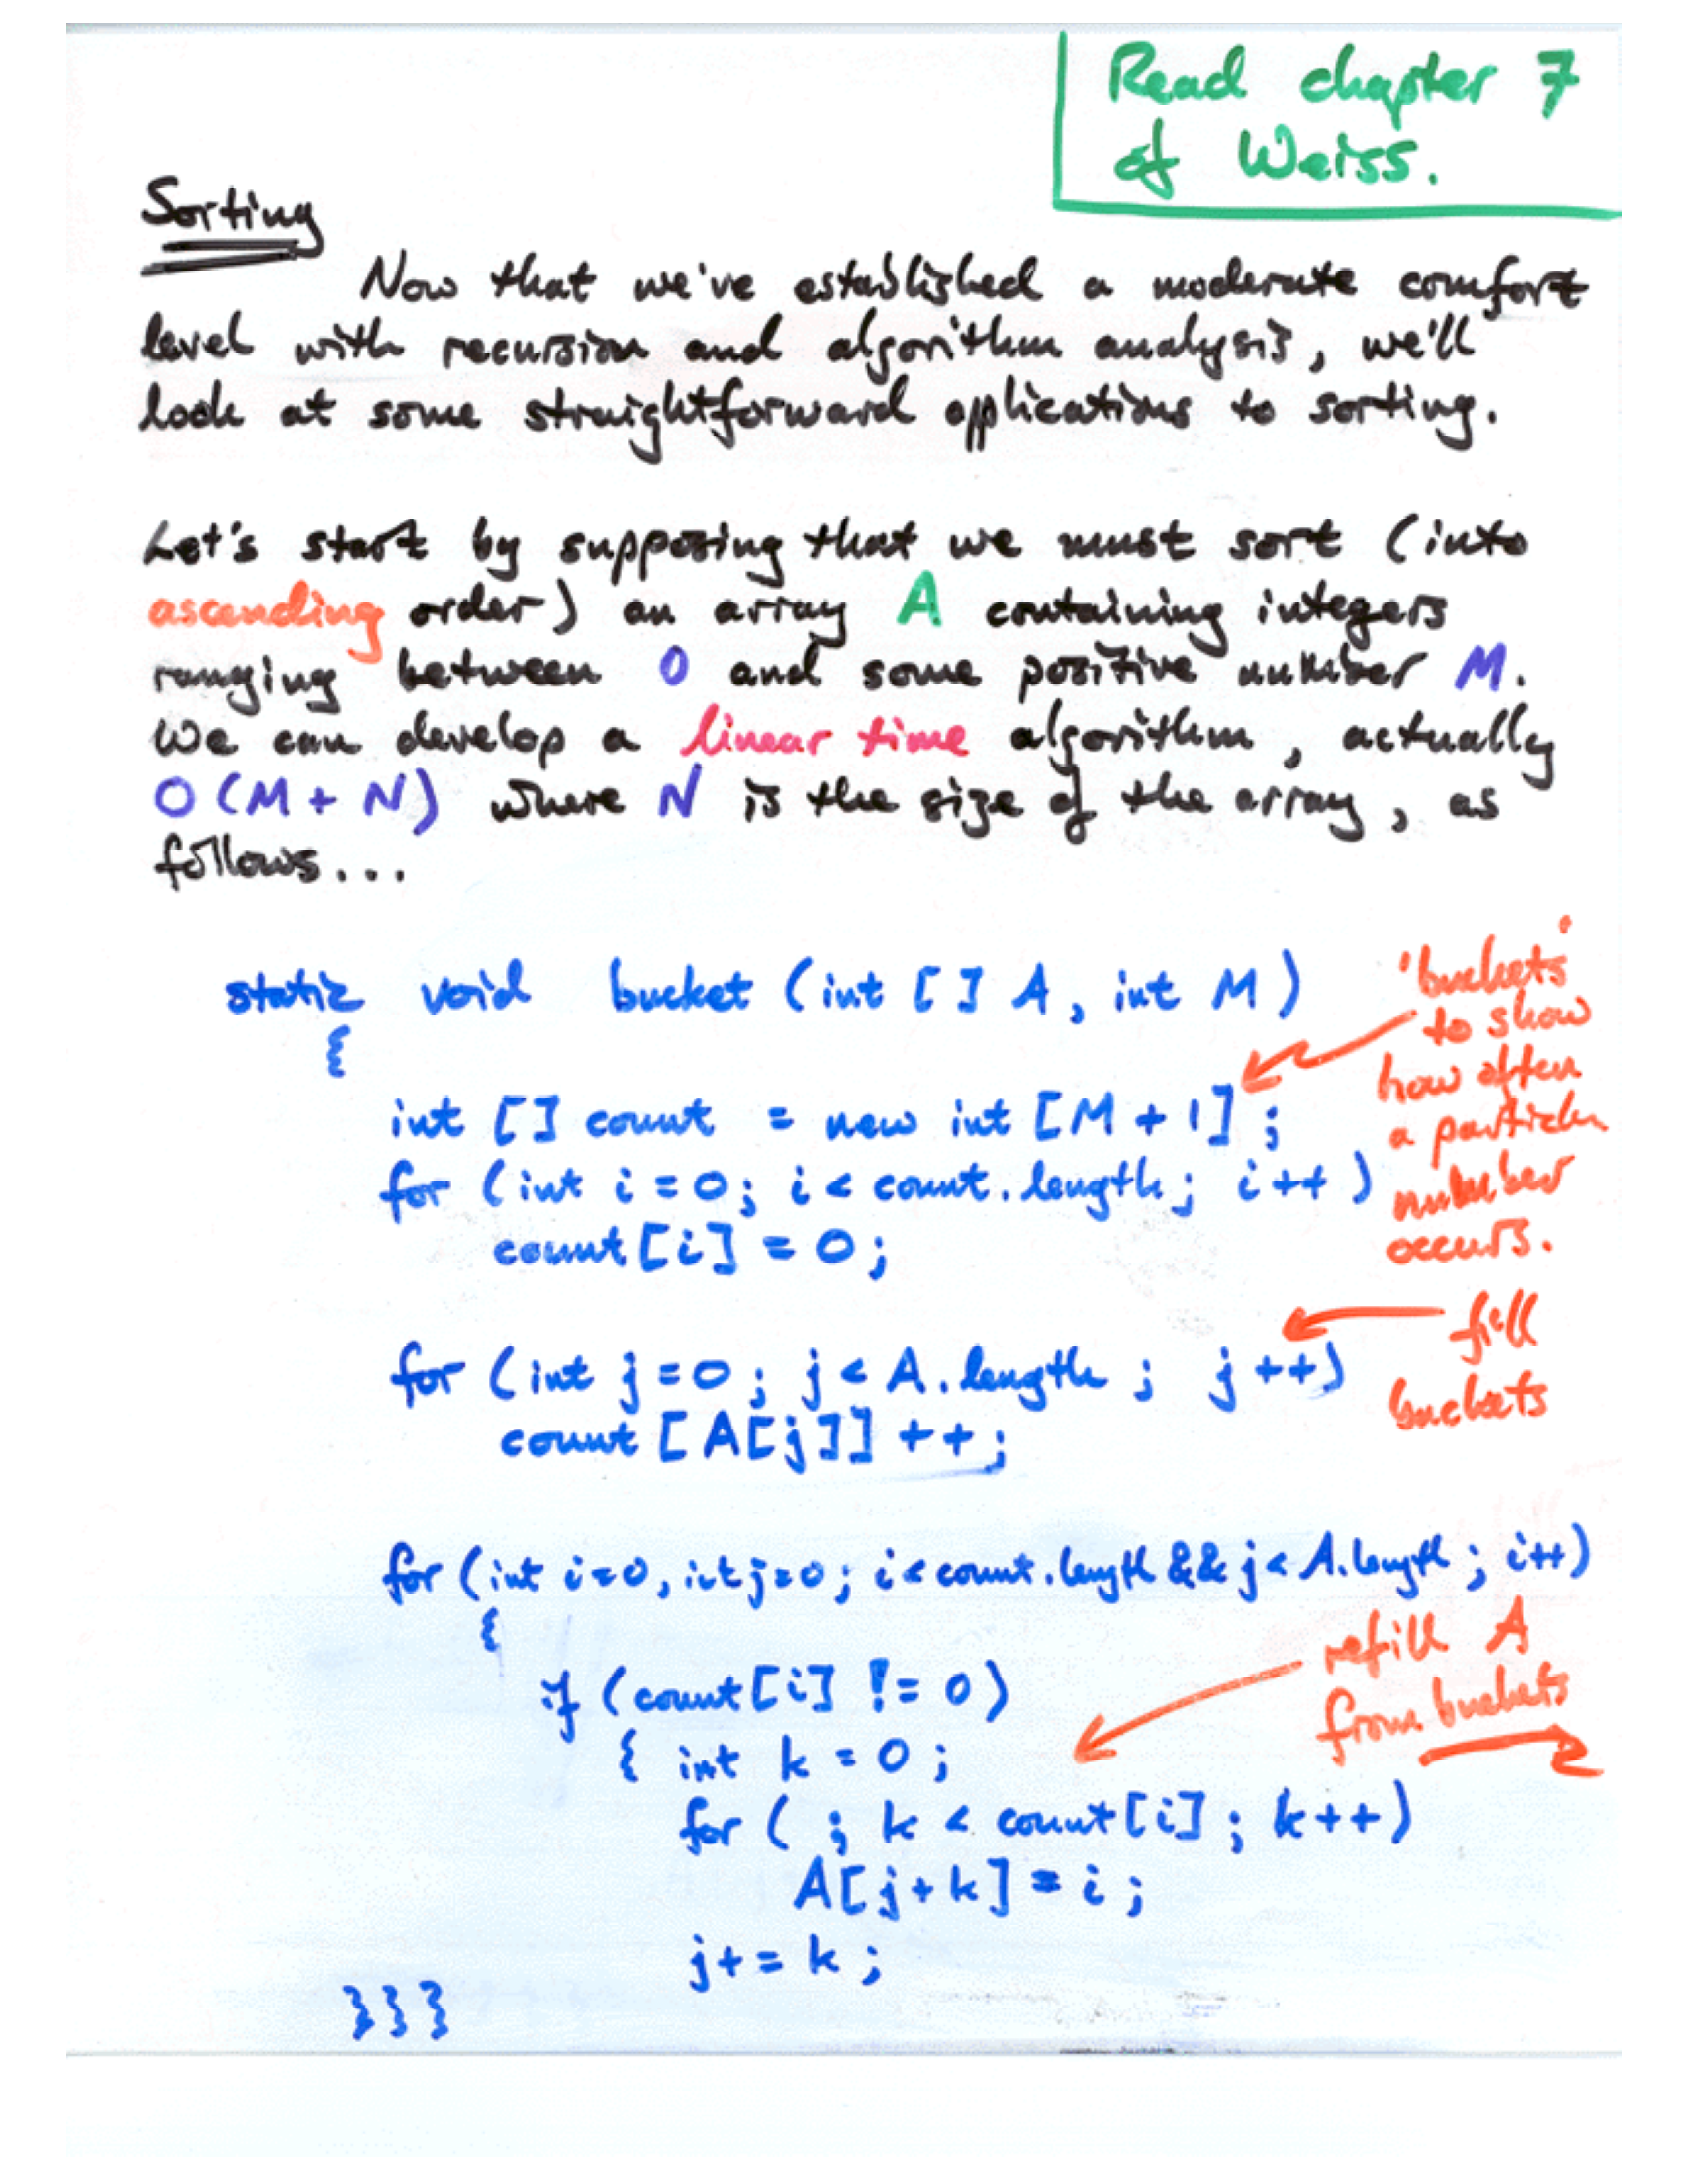 Read chapter 7
of Weiss.
Sorting
Now that we've established a moderate comfort
level with recursion and algorithm analysis, we'll
look at some straightforward applications to sorting.
Let's start by supposing that we must sort (into
ascending order) an array A containing integers
ranging between 0 and some positive number M.
We can develop a linear time algorithm, actually
O(M+N) where N is the size of the array, as
follows...
static void bucket (int [] A, int M)
{
'buckets'
to show
how often
a particular
number
occurs.
int [] count = new int [M+1];
for (int i=0; i<count.length; i++)
count[i] = 0;
for (int j=0; j<A.length; j++)
count [A[j]]++;
fill
buckets
for (int i=0, int j=0; i<count.length && j<A.length; i++)
{
if (count[i] != 0)
{ int k = 0;
for ( ; k < count[i]; k++)
A[j+k] = i;
j+= k;
}}}
refill A
from buckets